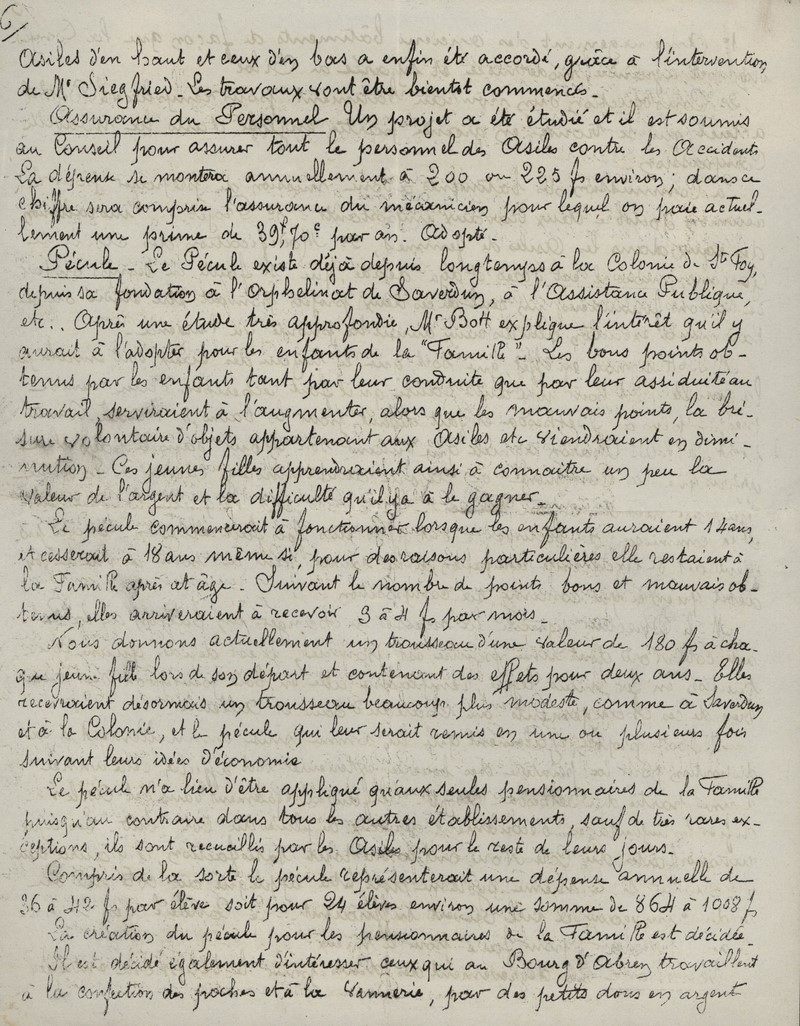 6/
Asiles d'en haut et ceux d'en bas a enfin été accordé, grâce à l'intervention
de Mr Siegfried. Les travaux vont être bientôt commencés.
Assurance du Personnel Un projet a été étudié et il est soumis
au Conseil pour assurer tout le personnel des Asiles contre les Accidents
La dépense se montera annuellement à 200 ou 225 f environ; dans ce
chiffre sera comprise l'assurance du mécanicien pour lequel on paie actuel-
lement une prime de 39f,70c par an. Adopté.
Pécule. Le Pécule existe déjà depuis longtemps à la Colonie de Ste Foy,
depuis sa fondation à l'Orphelinat de Saverdun, à l'Assistance Publique,
etc.. Après une étude très approfondie, Mr Bott explique l'intérêt qu'il y
aurait à l'adopter pour les enfants de la "Famille". Les bons points ob-
tenus par les enfants tant par leur conduite que par leur assiduité au
travail, serviraient à l'augmenter, alors que les mauvais points, la bri-
sure volontaire d'objets appartenant aux Asiles etc viendraient en dimi-
nution. Ces jeunes filles apprendraient ainsi à connaître un peu la
valeur de l'argent et la difficulté qu'il y a à le gagner.
Le pécule commencerait à fonctionner lorsque les enfants auraient 14 ans,
et cesserait à 18 ans même si, pour des raisons particulières elle restaient à
la Famille après cet âge. Suivant le nombre de points bons et mauvais ob-
tenus, elles arriveraient à recevoir 3 à 4 f par mois.
Nous donnons actuellement un trousseau d'une valeur de 180 f à cha-
que jeune fille lors de son départ et contenant des effets pour deux ans. Elles
recevraient désormais un trousseau beaucoup plus modeste, comme à Saverdun
et à la Colonie, et le pécule qui leur serait remis en une ou plusieurs fois
suivant leurs idées d'économie
Le pécule n'a lieu d'être appliqué qu'aux seules pensionnaires de la Famille
puisqu'au contraire dans tous les autres établissements, sauf de très rares ex-
ceptions, ils sont recueillis par les Asiles pour le reste de leurs jours.
Compris de la sorte le pécule représenterait une dépense annuelle de
36 à 42 f par élève soit pour 24 élèves environ une somme de 864 à 1008 f
La création du pécule pour les pensionnaires de la Famille est décidée.
Il est décidé également d'intéresser ceux qui au Bourg d'Abren travaillent
à la confection des poches et à la Vannerie, par des petits dons en argent